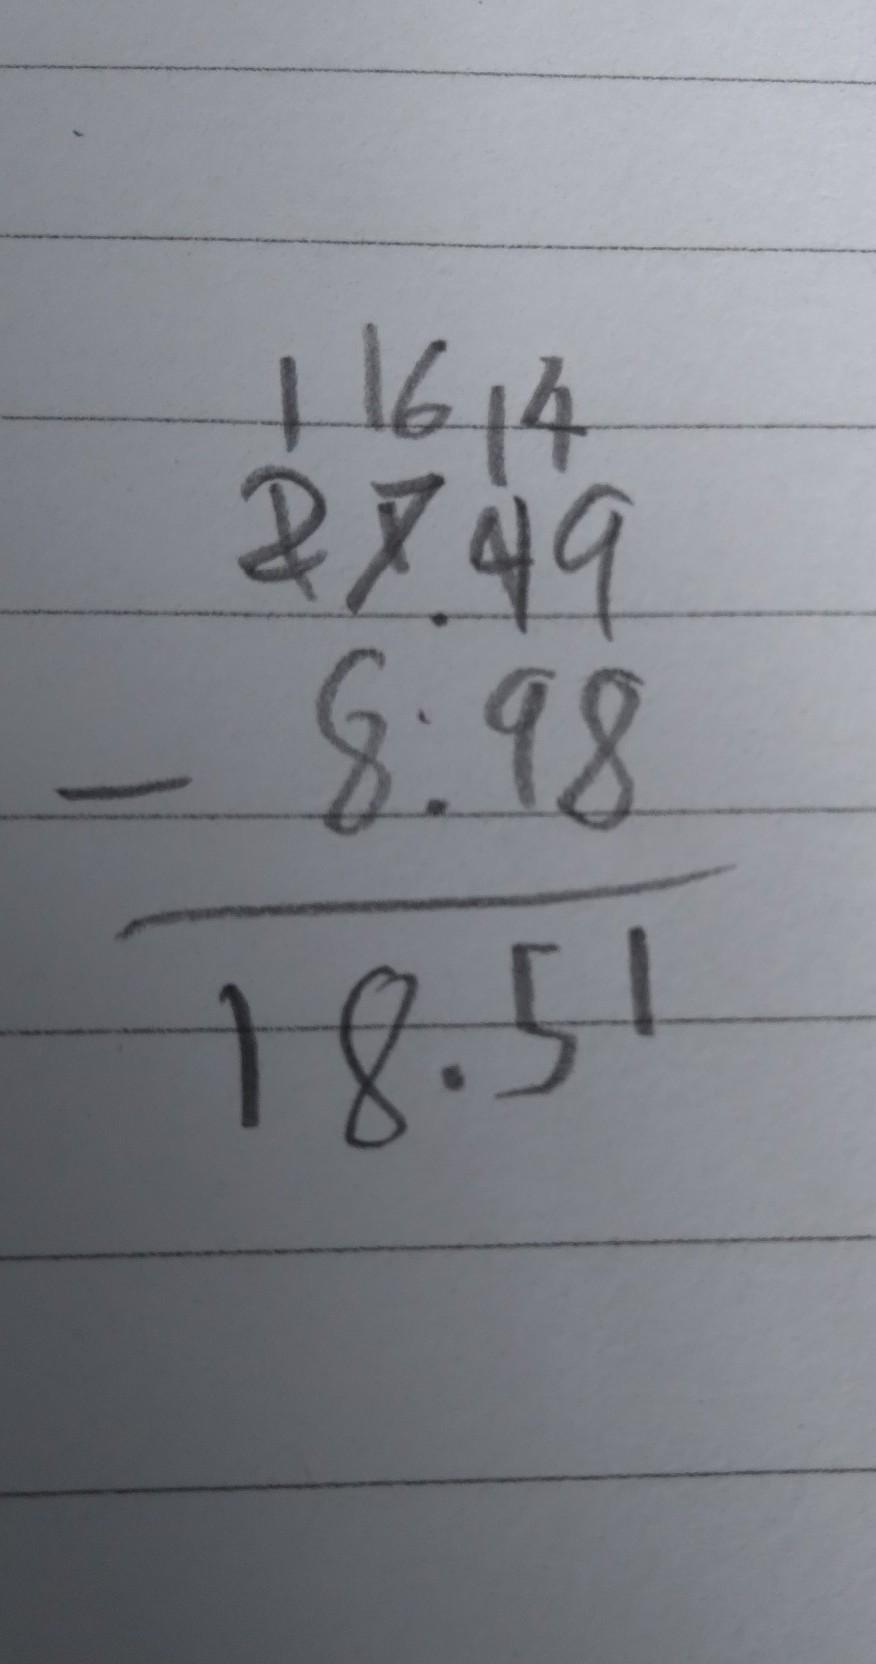 1 16 14
27.49
- 8.98
18.51